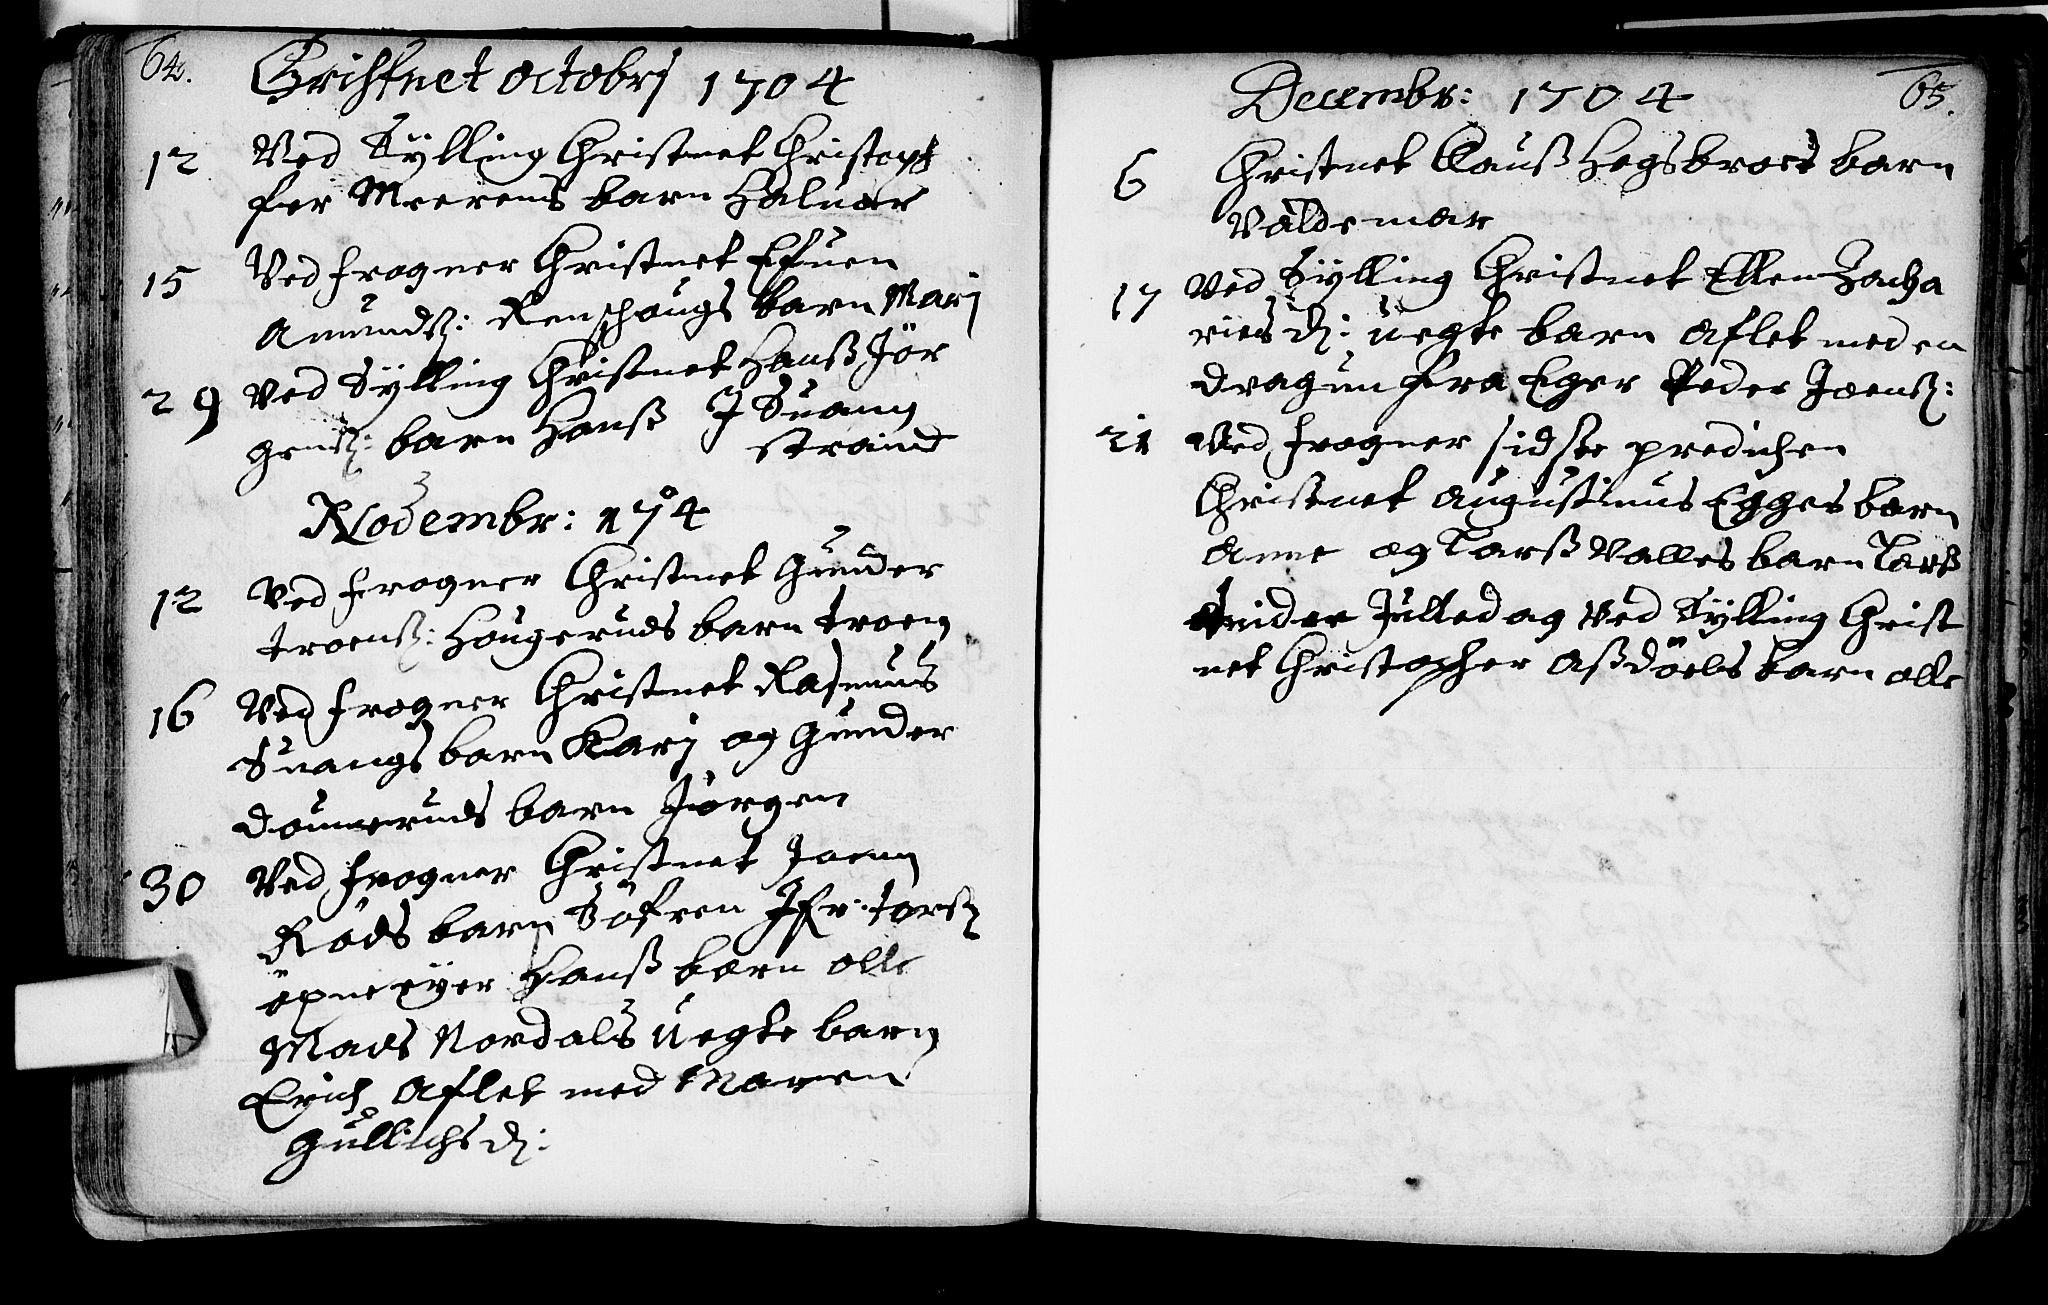 64.
Christnet octobrj 1704
12 Ved Sÿlling Christnet Christoph
fer Mverens barn Haluor
15 Ved frogner Christnet Efuen
Amundß: Renschougs barn Marj
29 Ved Sÿlling Christnet Hanß Jör
gensß: barn Hanß J Suang
strand
Novembr: 1704
12 Ved frogner Christnet Gunder
troenß: Hougeruds barn troen
16 Ved frogner Christnet Rasmus
Suangs barn Karj og Gunder
barn Jörgen
30 Ved frogner Christnet Joenn
Röds barn Söfren Ifr: Torß
Hanß barn olle
Mads Nordals uegte barn
Erich Aflet med Maren
Gullichs d:
65.
Decembr: 1704
6 Christnet Clauß Hegsbroes barn
Valdemar
17 Ved Sÿlling Christnet Ellen Zacha
ries d: uegte barn aflet med en
dragun fra Eger Peder Joenß:
21 Ved frogner sidste predichen
Christnet Augustinus Egges barn
Anne og Larß Valles barn Larß
Anden Julledag Ved Sÿlling Christ
net Christopher Aßdöels barn olle